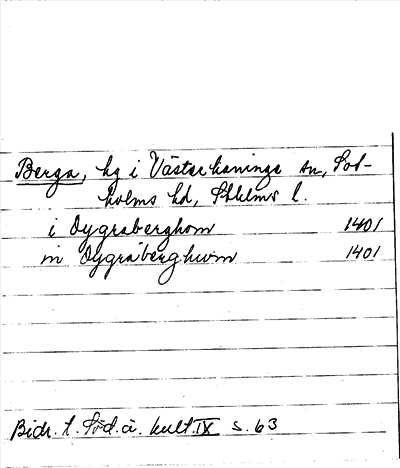 Berga, hg i Västerhaninge sn, Sot-
holms hd, Sthlms l.
i Dygraberghom 1401
in Dygraberghwm 1401
Bidr. t. Söd.ä. kult. IX s. 63